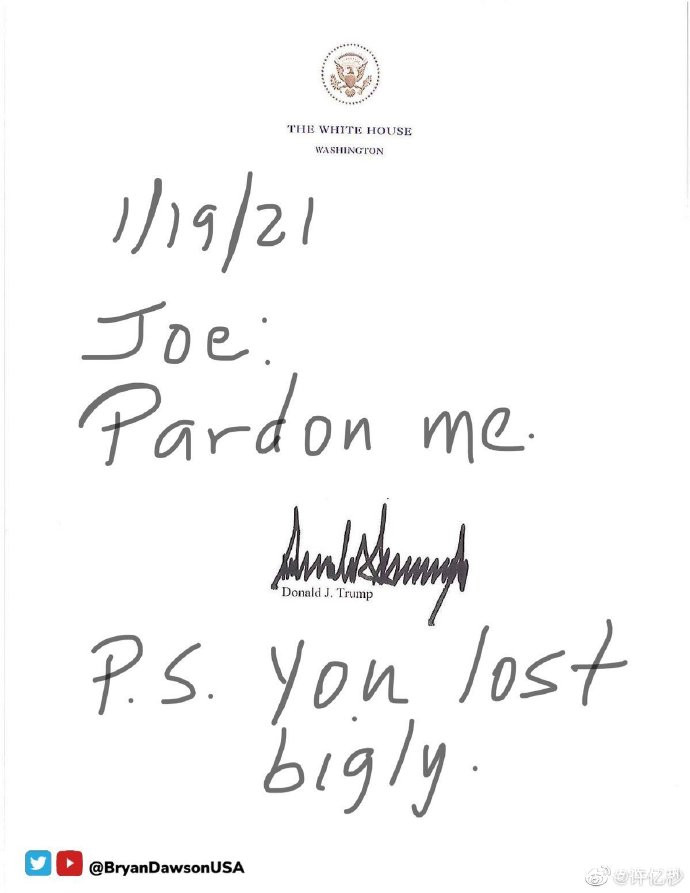 THE WHITE HOUSE
WASHINGTON
1/19/21
Joe:
Pardon me.
Donald J. Trump
P.S. you lost
bigly.
@BryanDawsonUSA
@许亿秒